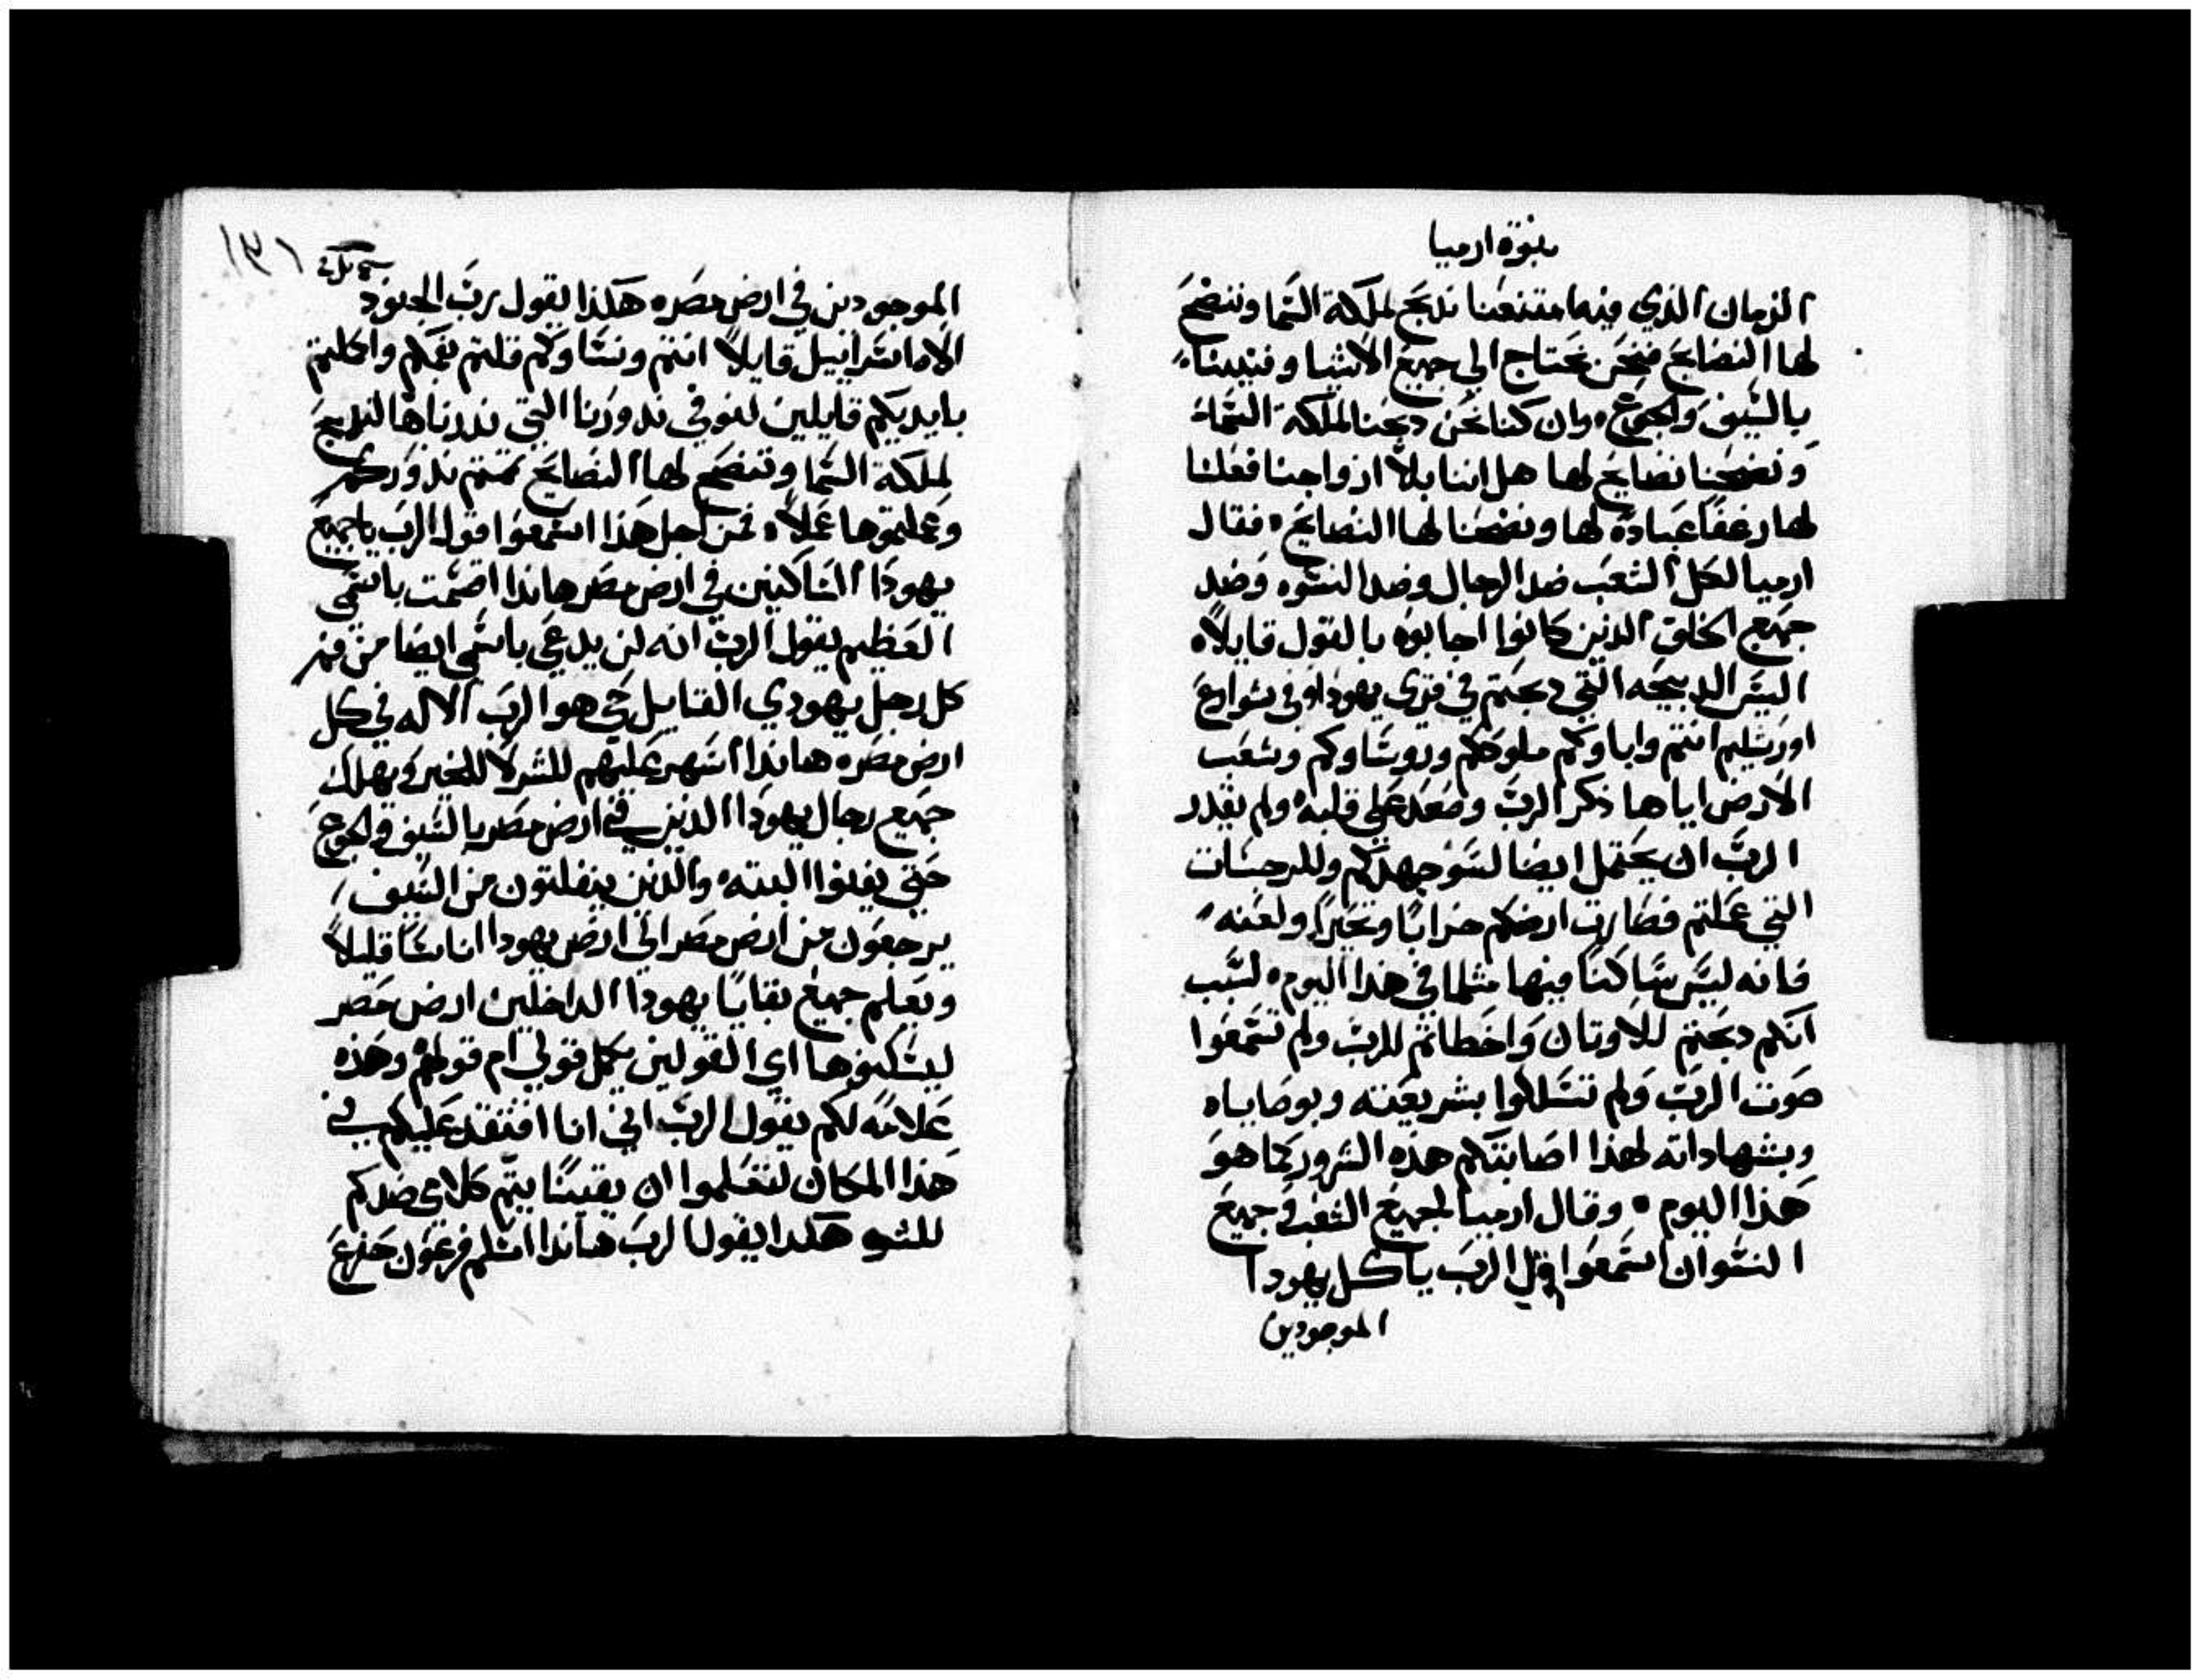 نبوة ارميا
الزمان الذي فيه امتنعنا ندبح لملكة السما وننضح
لها النضايح فنحن نحتاج الي جميع الاشيا وفنيينا
بالسيف والجوع، وان كنا نحن دبحنا لملكة السماء
ونضحنا نضايح لها هل اننا بلا ازواجنا فعلنا
لها رغفا عبادة لها ونضحنا لها النضايح، فقال
ارميا لكل الشعب ضد الرجال وضد النسوه وضد
جميع الخلق الدين كانوا اجابوه بالقول قايلاه
اليس الدبيحه التي دبحتم في قري يهودا وفي شوارع
اورشليم انتم واباوكم ملوككم وروساوكم وشعب
الارض اياها ذكر الرب وصعد علي قلبه، ولم يقدر
الرب ان يحتمل ايضا لسو جهدكم وللرجسات
التي عملتم فصارت ارضكم خرابًا وتحيرًا ولعنه
فانه ليس ساكنًا فيها مثلما في هذا اليوم، لسبب
انكم دبحتم للاوتان واخطاتم للرب ولم تسمعوا
صوت الرب ولم تسلكوا بشريعته وبوصاياه
وبشهاداته لهذا اصابتكم هذه الشرور كما هو
هذا اليوم. وقال ارميا لجميع الشعب وجميع
النسوان اسمعوا قول الرب ياكل يهودا
الموجودين
١٣١
الموجودين في ارض مصره هكذا يقول رب الجنود
الاه اسراييل قايلاً انتم ونساوكم قلتم بفمكم واكلتم
بايديكم قايلين لنوفي ندورنا التي ندرناها لندبح
لملكة السما وننضح لها النضايح تمتم ندوركم
وعملتوها عملاً، فمن اجل هذا اسمعوا قول الرب ياجميع
يهودا الساكنين في ارض مصر هاندا اقسمت باسمي
العظيم يقول الرب انه لن يدعي باسمي ايضا من فم
كل رجل يهودي القايل حي هو الرب الاله في كل
ارض مصره هاندا اسهر عليهم للشر لا للخير ويهلك
جميع رجال يهودا الدين في ارض مصر بالسيف والجوع
حتي يفنوا البته، والدين ينفلتون من السيف
يرجعون من ارض مصر الي ارض يهودا اناسًا قليلاً
ويعلم جميع بقايا يهودا الداخلين ارض مصر
ليسكنوها اي القولين يكمل قولي ام قولهم وهذه
علامه لكم يقول الرب اني انا افتقد عليكم في
هذا المكان لتعلموا ان يقينًا يتم كلامي ضدكم
للسو هكدا يقول الرب هاندا اسلم فرعون حفرع